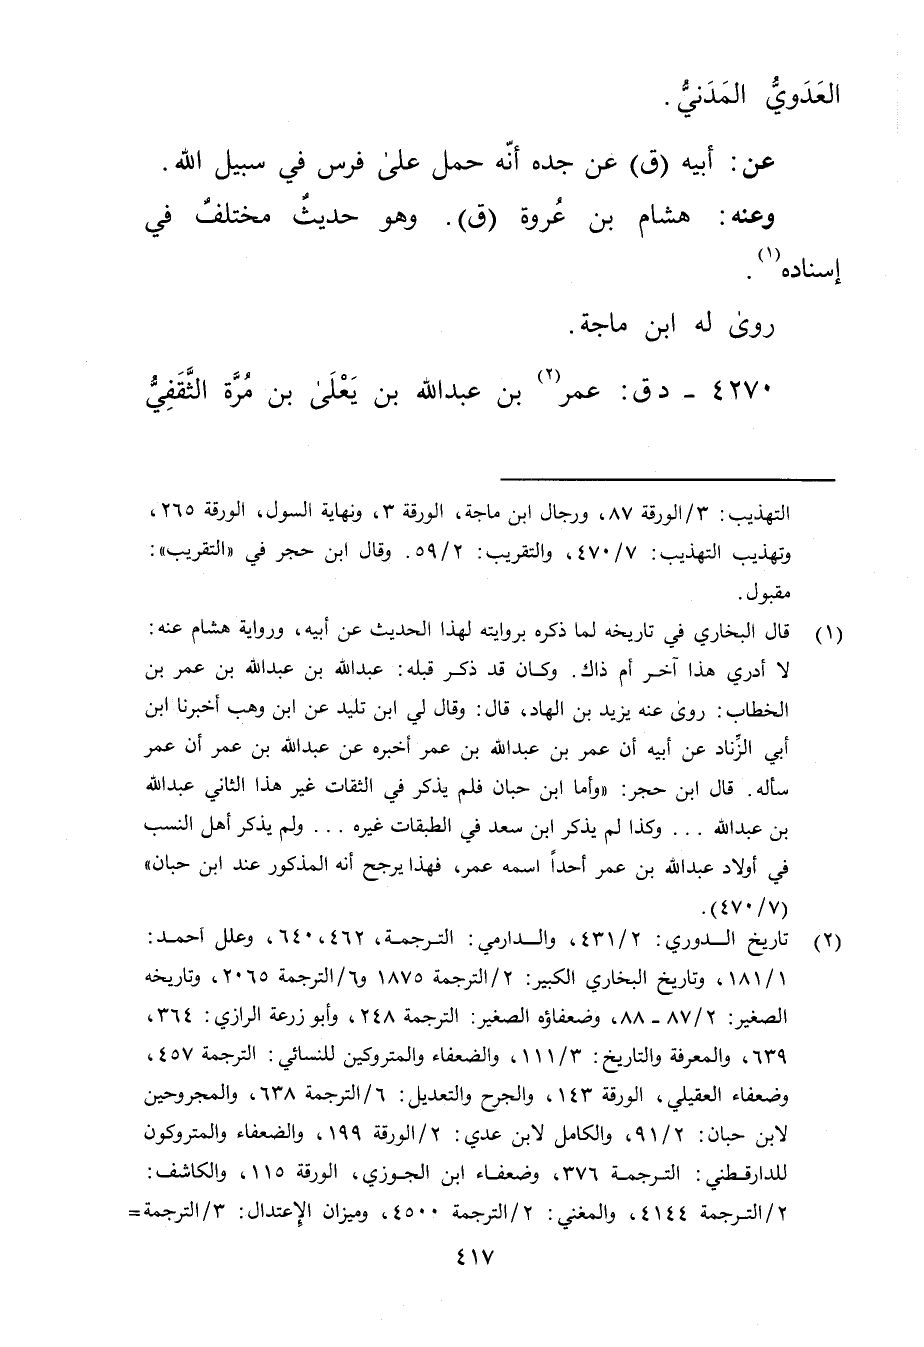 العَدَويُّ المَدَنيُّ.
عن: أبيه (ق) عن جده أنّه حمل علىٰ فرس في سبيل الله.
وعنه: هشام بن عُروة (ق). وهو حديثٌ مختلفٌ في
إسناده(١).
روىٰ له ابن ماجة.
٤٢٧٠ ـ د ق: عمر(٢) بن عبدالله بن يَعْلَىٰ بن مُرَّة الثَّقَفِيُّ
التهذيب: ٣/الورقة ٨٧، ورجال ابن ماجة، الورقة ٣، ونهاية السول، الورقة ٢٦٥،
وتهذيب التهذيب: ٤٧٠/٧، والتقريب: ٥٩/٢. وقال ابن حجر في «التقريب»:
مقبول.
(١) قال البخاري في تاريخه لما ذكره بروايته لهذا الحديث عن أبيه، ورواية هشام عنه:
لا أدري هذا آخر أم ذاك. وكان قد ذكر قبله: عبدالله بن عبدالله بن عمر بن
الخطاب: روىٰ عنه يزيد بن الهاد، قال: وقال لي ابن تليد عن ابن وهب أخبرنا ابن
أبي الزِّناد عن أبيه أن عمر بن عبدالله بن عمر أخبره عن عبدالله بن عمر أن عمر
سأله. قال ابن حجر: «وأما ابن حبان فلم يذكر في الثقات غير هذا الثاني عبدالله
بن عبدالله ... وكذا لم يذكر ابن سعد في الطبقات غيره ... ولم يذكر أهل النسب
في أولاد عبدالله بن عمر أحداً اسمه عمر، فهذا يرجح أنه المذكور عند ابن حبان»
(٤٧٠/٧).
(٢) تاريخ الدوري: ٤٣١/٢، والدارمي: الترجمة، ٤٦٢، ٦٤٠، وعلل أحمد:
١٨١/١، وتاريخ البخاري الكبير: ٢/الترجمة ١٨٧٥ و٦/الترجمة ٢٠٦٥، وتاريخه
الصغير: ٨٧/٢ ـ ٨٨، وضعفاؤه الصغير: الترجمة ٢٤٨، وأبو زرعة الرازي: ٣٦٤،
٦٣٩، والمعرفة والتاريخ: ١١١/٣، والضعفاء والمتروكين للنسائي: الترجمة ٤٥٧،
وضعفاء العقيلي، الورقة ١٤٣، والجرح والتعديل: ٦/الترجمة ٦٣٨، والمجروحين
لابن حبان: ٩١/٢، والكامل لابن عدي: ٢/الورقة ١٩٩، والضعفاء والمتروكون
للدارقطني: الترجمة ٣٧٦، وضعفاء ابن الجوزي، الورقة ١١٥، والكاشف:
٢/الترجمة ٤١٤٤، والمغني: ٢/الترجمة ٤٥٠٠، وميزان الإعتدال: ٣/الترجمة=
٤١٧